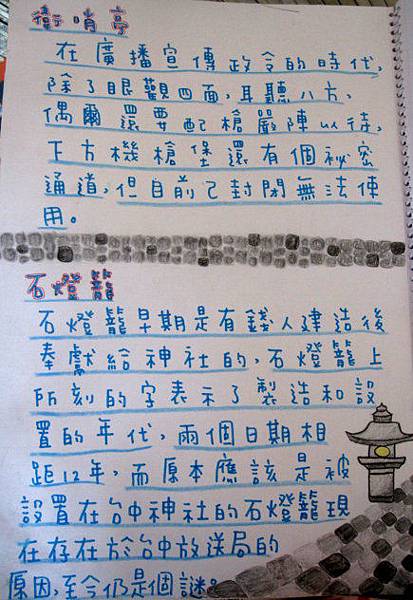 衛哨亭
在廣播宣傳政令的時代,
除了眼觀四面,耳聽八方,
偶爾還要配槍嚴陣以待,
下方機槍堡還有個祕密
通道,但目前已封閉無法使
用。
石燈籠
石燈籠早期是有錢人建造後
奉獻給神社的,石燈籠上
所刻的字表示了製造和設
置的年代,兩個日期相
距12年,而原本應該是被
設置在台中神社的石燈籠現
在存在於台中放送局的
原因,至今仍是個謎。